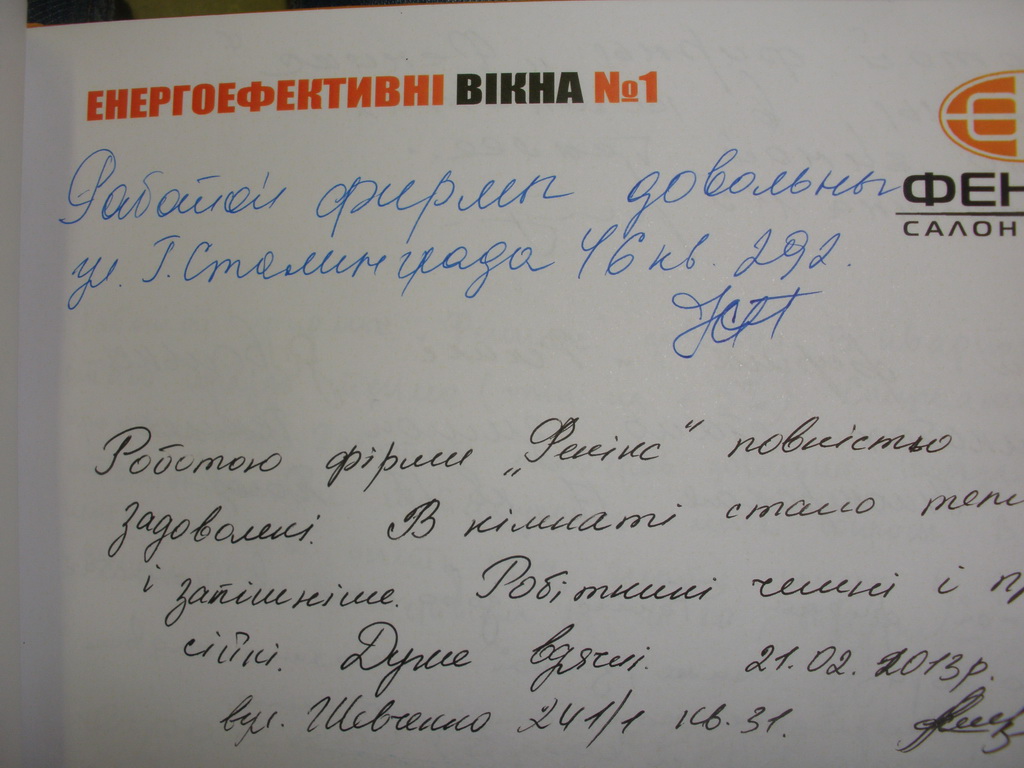 ЕНЕРГОЕФЕКТИВНІ ВІКНА №1
ФЕН
САЛОН
Работой фирмы довольны
ул. Г. Сталинграда 46 кв. 292.
Роботою фірми „Фенікс" повністю
задоволені. В кімнаті стало теп
і затишніше. Робітники чемні і пр
сійні. Дуже вдячні. 21.02.2013р.
вул. Шевченко 241/1 кв. 31.